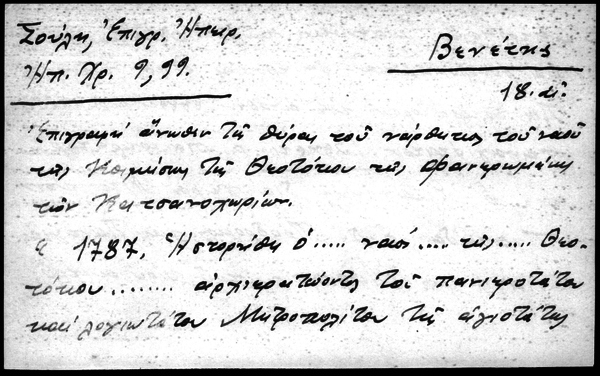 Σούλη, Ἐπιγρ. Ἠπειρ.
Ἠπ. Χρ. 9, 99.
Βενέτης
18. αἰ.
Ἐπιγραφὴ ἄνωθεν τῆς θύρας τοῦ νάρθηκος τοῦ ναοῦ
τῆς Κοιμήσεως τῆς Θεοτόκου τῆς Φανερωμένης
τῶν Κατσανοχωρίων.
1787, Ἡστορήθη ὁ..... ναός.... τῆς.... Θεο-
τόκου........ ἀρχιερατεύοντος τοῦ πανιερωτάτου
καὶ λογιωτάτου Μητροπολίτου τῆς ἁγιωτάτης